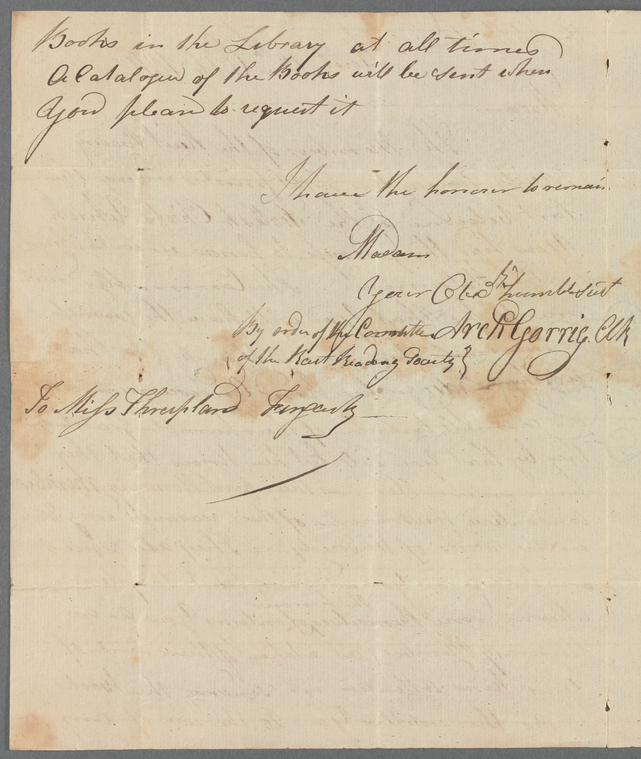 Books in the Library at all times
A Catalogue of the Books will be sent when
You please to request it
I have the honour to remain
Madam
Your Obedt humble Sert
By order of the Committee Archd Gorrie, Clk
of the Rait Reading Society
To Miss Threipland Fingask